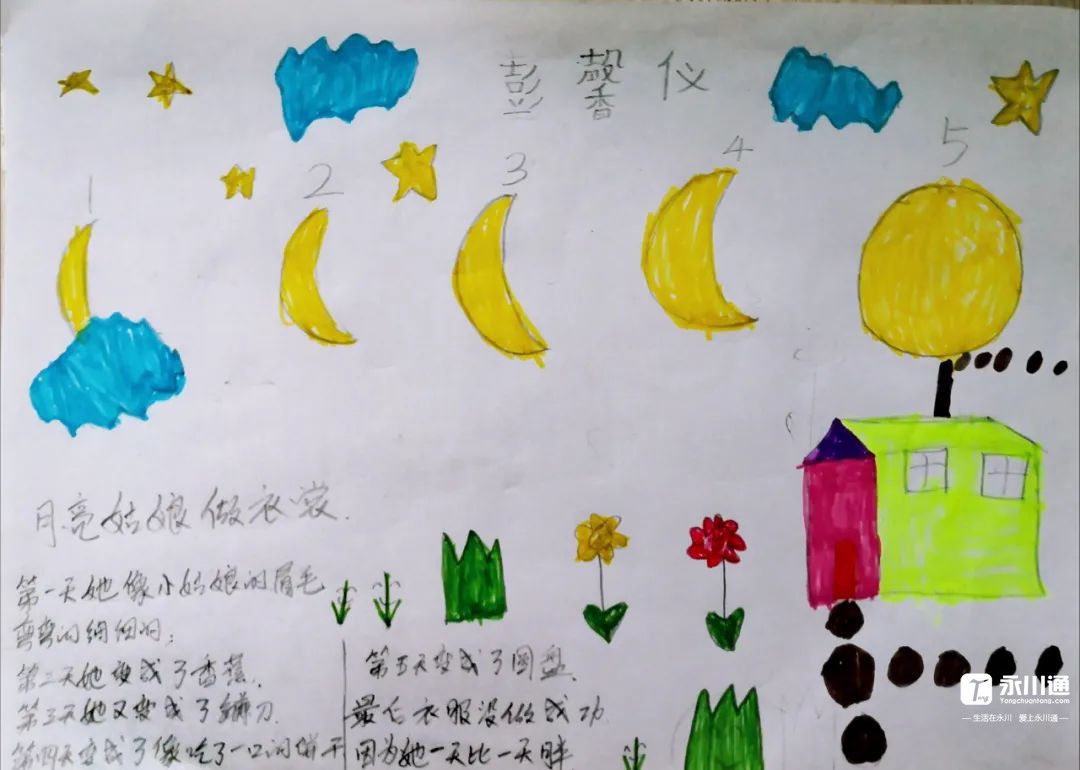 彭馨仪
1
2
3
4
5
月亮姑娘做衣裳.
第一天她像小姑娘的眉毛
弯弯的细细的;
第二天她变成了香蕉.
第三天她又变成了镰刀.
第四天变成了像吃了一口的饼干
第五天变成了圆盘.
最后衣服没做成功
因为她一天比一天胖
永川通
Yongchuantong.com
— 生活在永川 爱上永川通 —